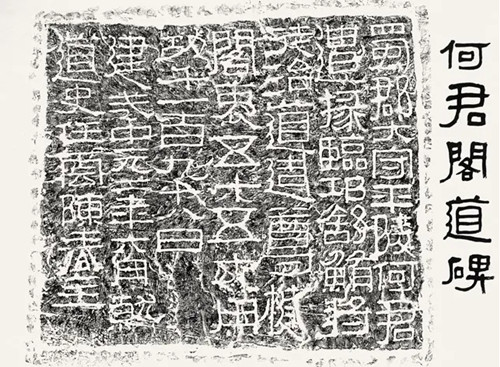 何君閣道碑
蜀郡太守平陵何君
遣掾臨邛舒鮪將
徒治道造尊楗
閣袤五十五丈用
功千一百九十八日
建武中元二年六月就
道史任雲陳春主